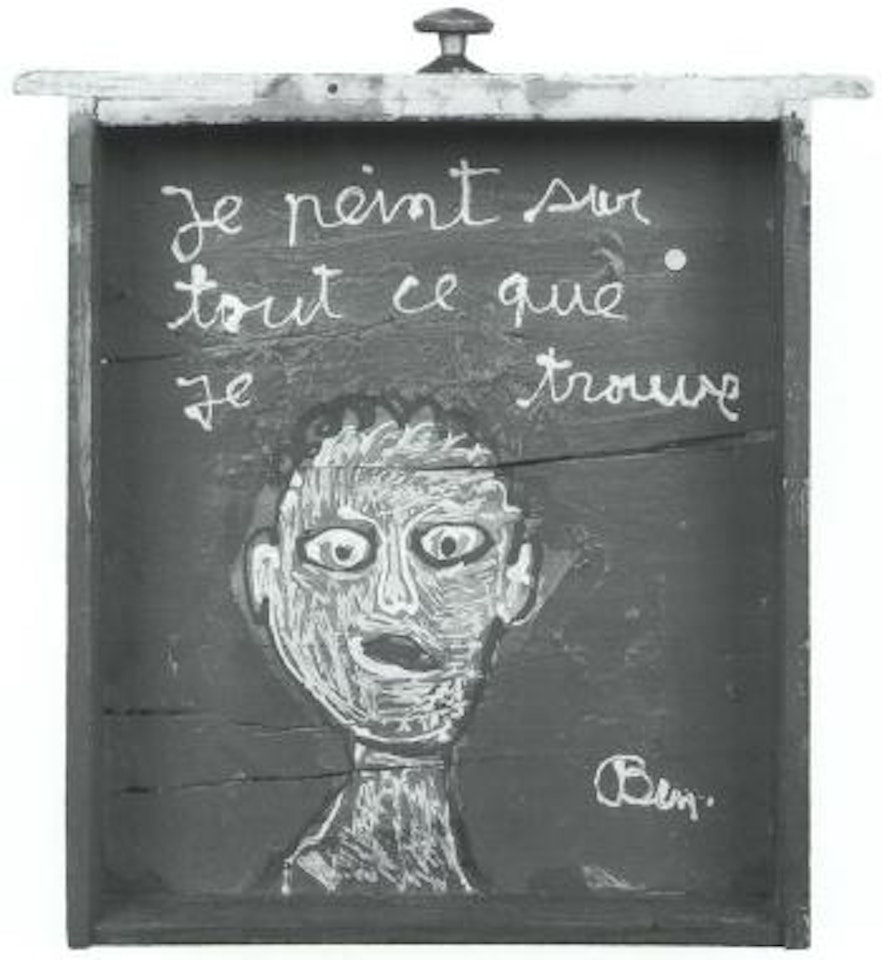 Je peint sur
tout ce que
je trouve
Ben.